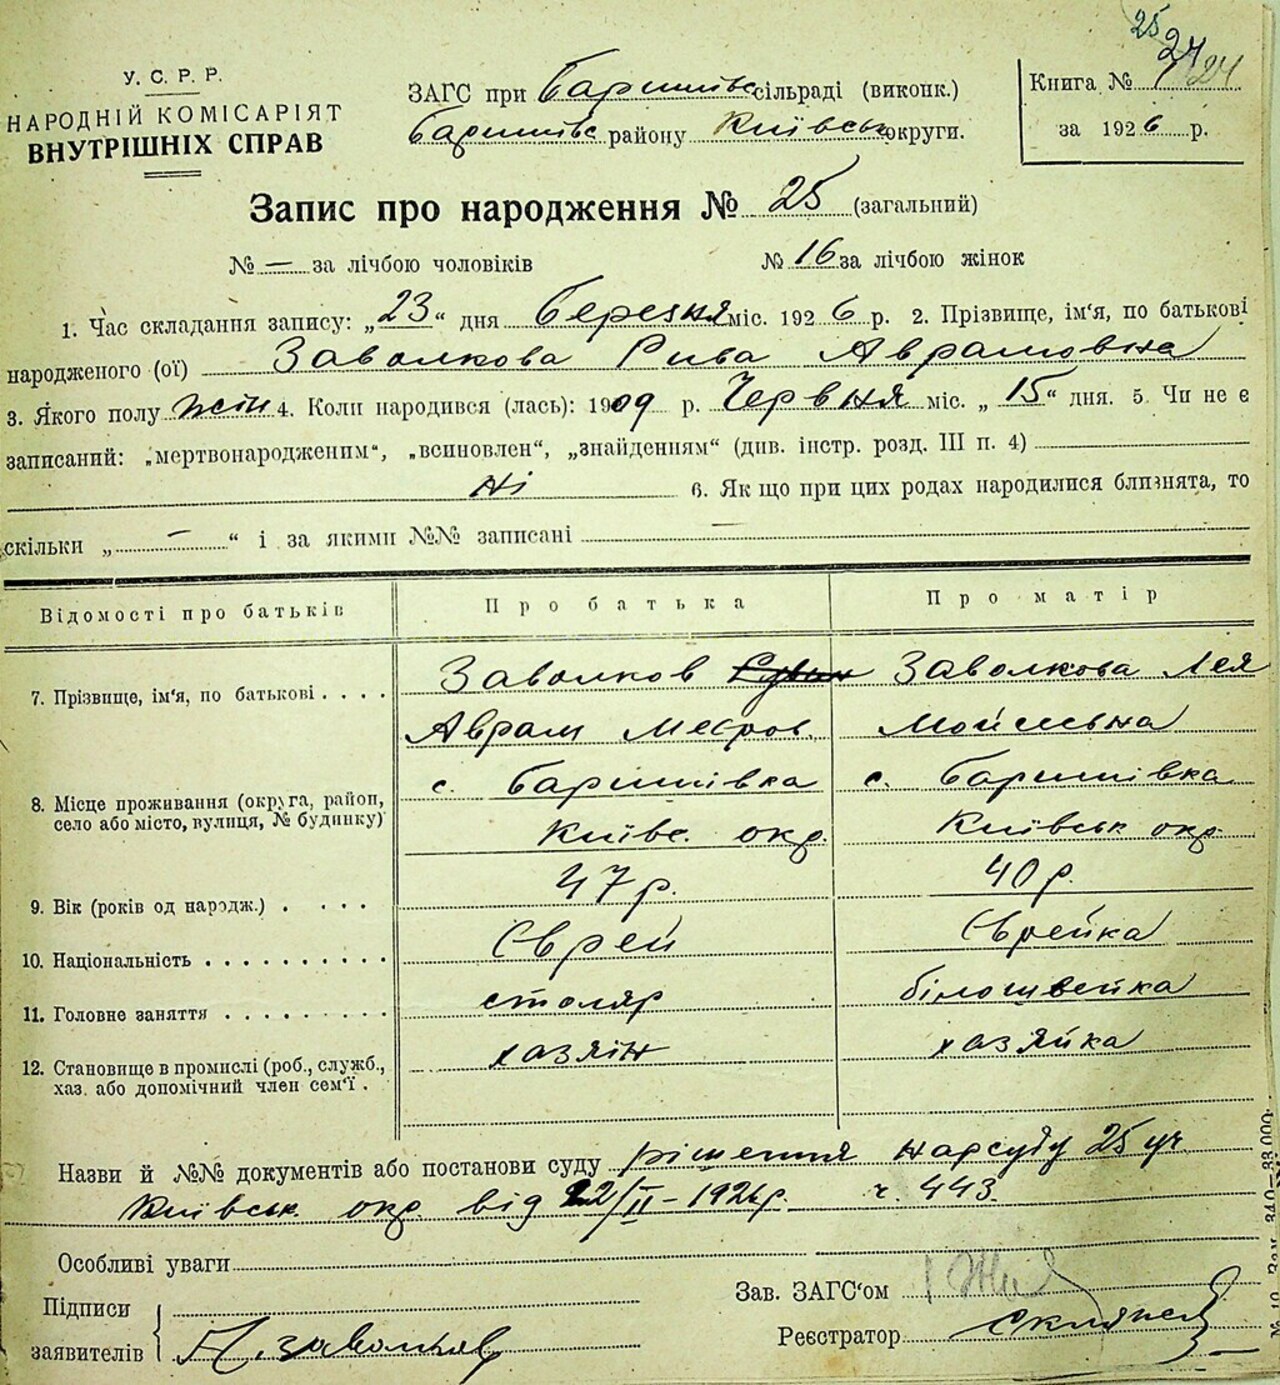 25
24
У. С. Р. Р.
НАРОДНІЙ КОМІСАРІЯТ
ВНУТРІШНІХ СПРАВ
ЗАГС при Баришівс сільраді (виконк.)
Баришівс району Київськ округи.
Книга № 1 24
за 1926 р.
Запис про народження № 25 (загальний)
№ — за лічбою чоловіків № 16 за лічбою жінок
1. Час складання запису: „23“ дня березня міс. 1926 р. 2. Прізвище, ім'я, по батькові
народженого (ої) Заволкова Рива Аврамовна
3. Якого полу жін 4. Коли народився (лась): 1909 р. Червня міс. „15“ дня. 5. Чи не є
записаний: „мертвонародженим“, „всиновлен“, „знайденням“ (див. інстр. розд. III п. 4)
Ні 6. Як що при цих родах народилися близнята, то
скільки „ — “ і за якими №№ записані —
Відомості про батьків Про батька Про матір
7. Прізвище, ім'я, по батькові . . . . Заволков Заволкова Лея
Аврам Меєров. Мойсеєвна
8. Місце проживання (округа, район, село або місто, вулиця, № будинку) с. Баришівка с. Баришівка
Київс. окр. Київськ окр.
9. Вік (років од народж.) . . . . 47 р. 40 р.
10. Національність . . . . . . . . . . Єврей Єврейка
11. Головне заняття . . . . . . . . . столяр білошвейка
12. Становище в промислі (роб., служб., хаз. або допомічний член сем'ї . хазяїн хазяйка
Назви й №№ документів або постанови суду рішення нарсуду 25 уч.
Київськ. окр. від 22/II – 1926 р. ч. 443.
Особливі уваги
Підписи
заявителів А. Заволков
Зав. ЗАГС'ом
Реєстратор
№ 10. Зак. 340—33.000.